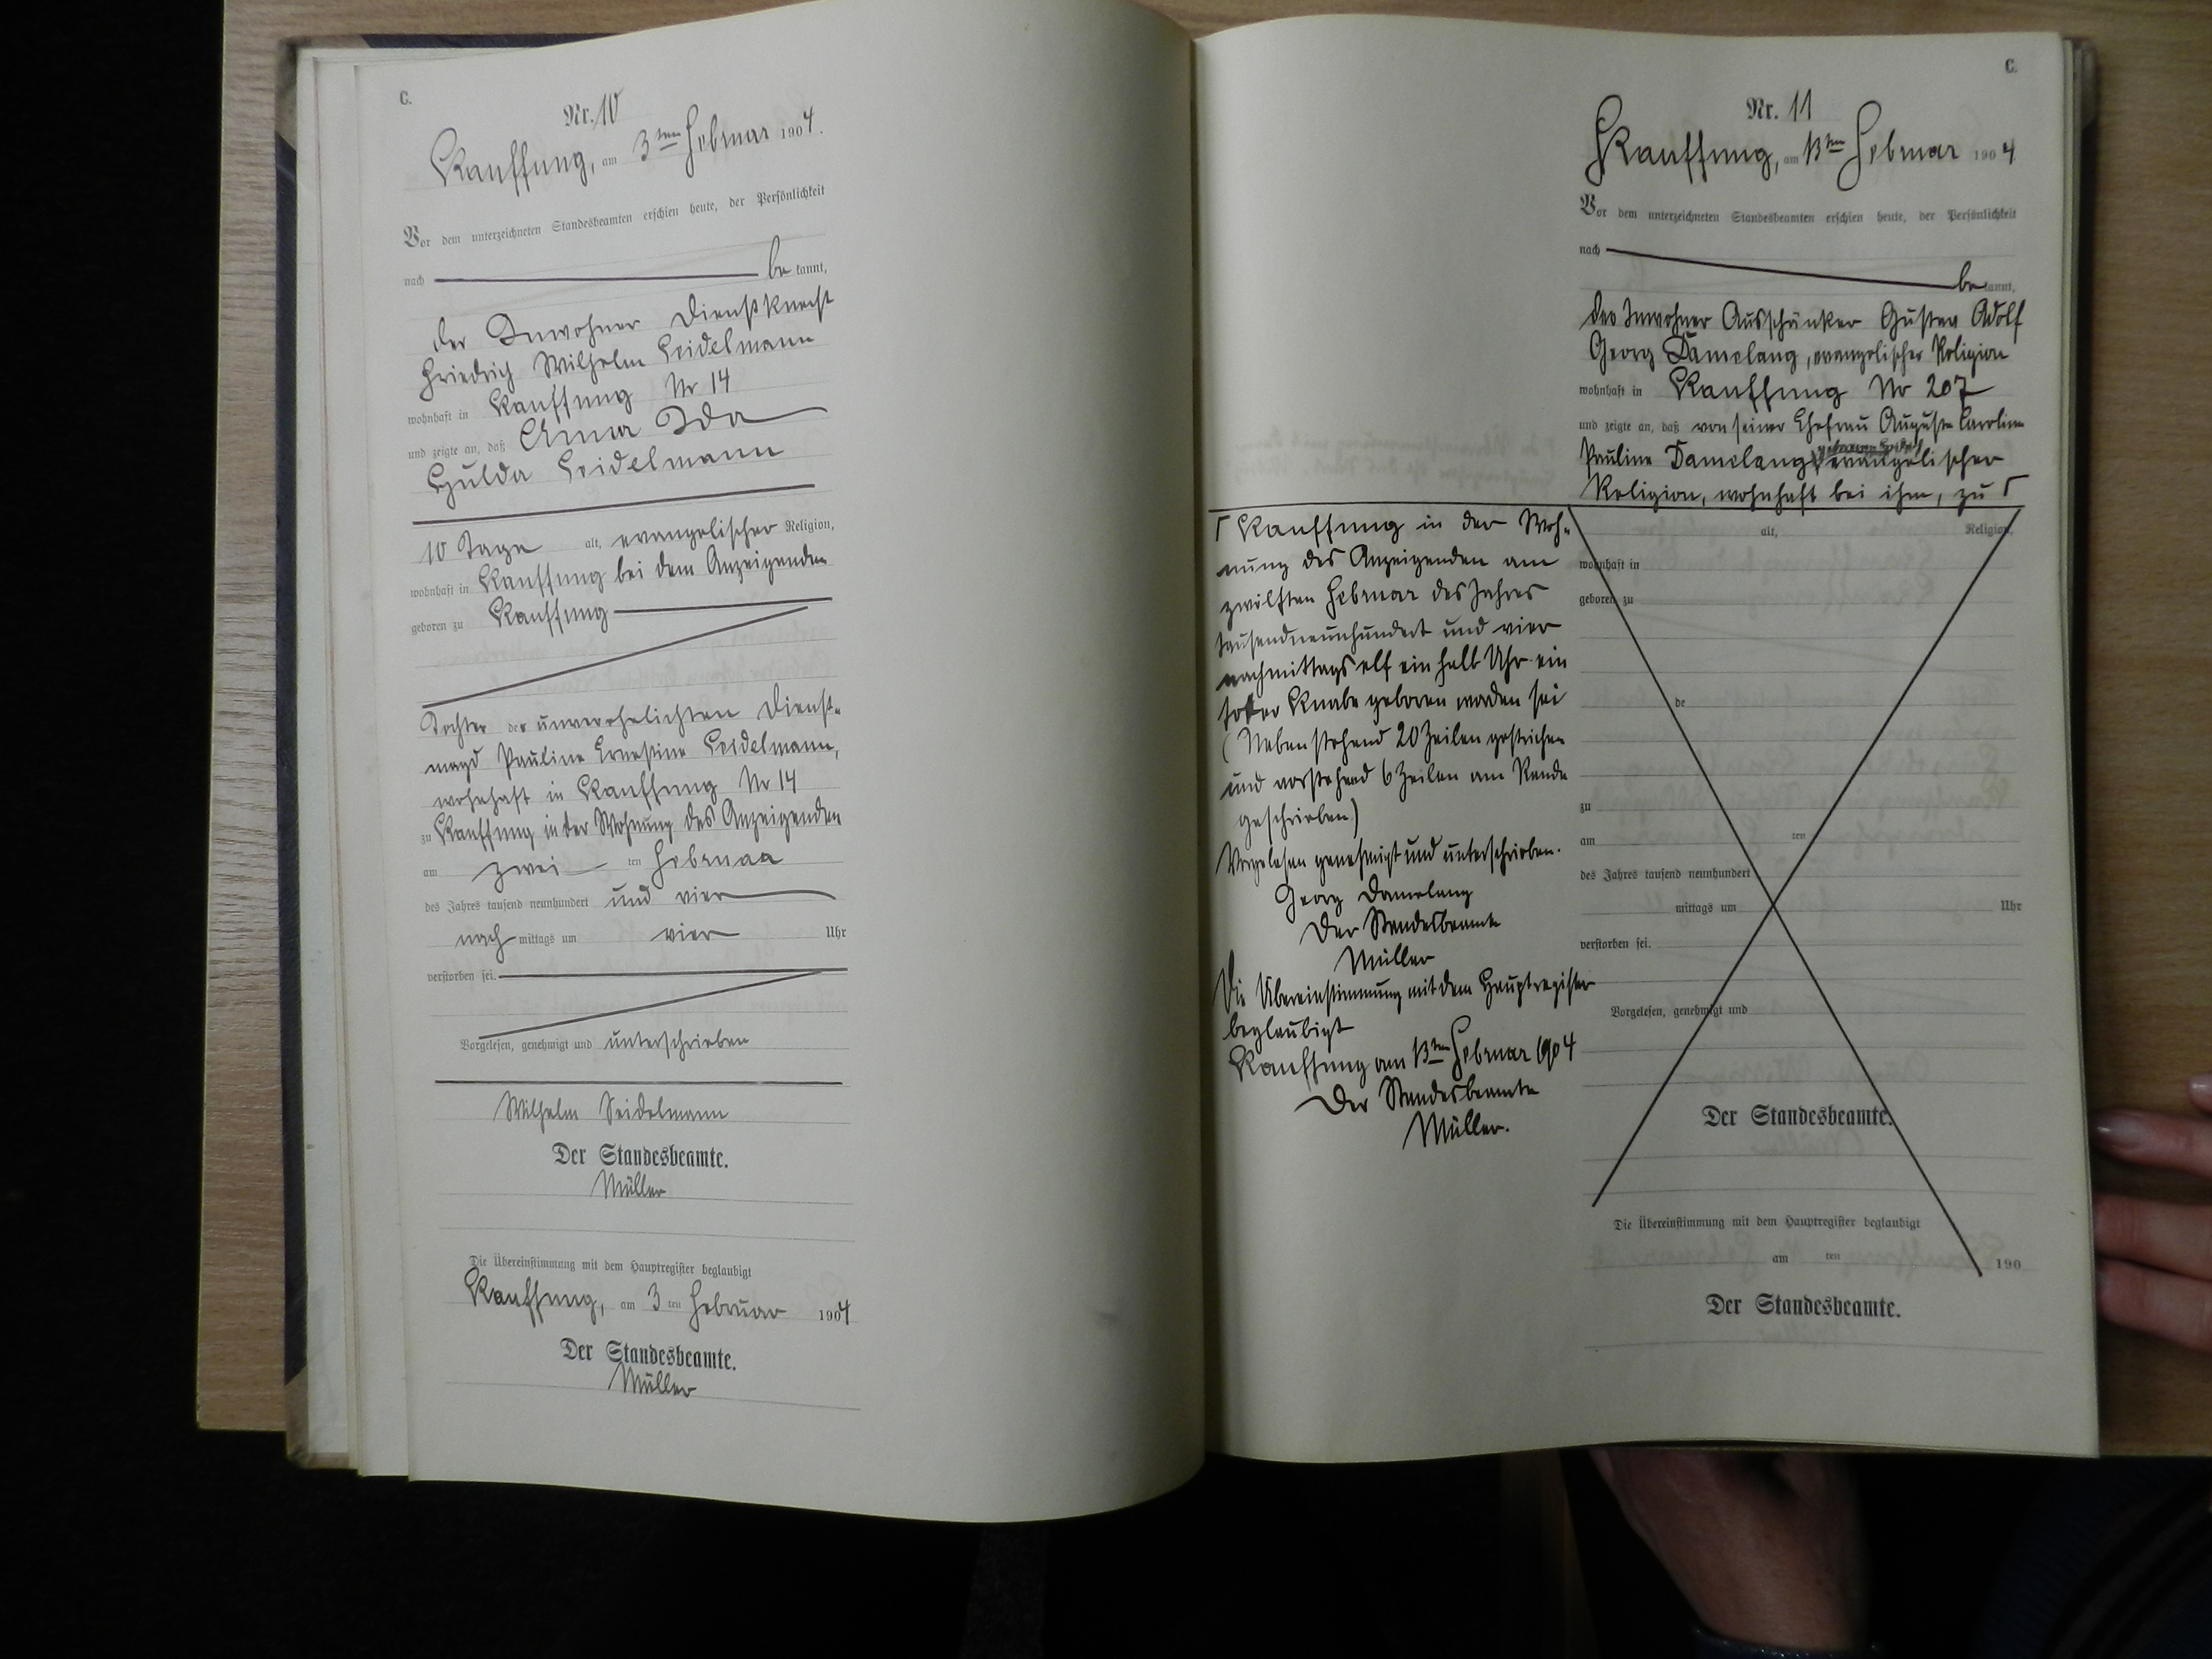 C.
Nr. 10
Kauffung, am 3ten Februar 1904.
Vor dem unterzeichneten Standesbeamten erschien heute, der Persönlichkeit
nach be kannt,
der Inwohner Dienstknecht
Friedrich Wilhelm Seidelmann
wohnhaft in Kauffung Nr 14
und zeigte an, daß Anna Ida
Hulda Seidelmann
10 Tage alt, evangelischer Religion,
wohnhaft in Kauffung bei dem Anzeigenden
geboren zu Kauffung
Tochter der unverehelichten Dienst-
magd Pauline Ernestine Seidelmann,
wohnhaft in Kauffung Nr 14
zu Kauffung in der Wohnung des Anzeigenden
am zwei ten Februar
des Jahres tausend neunhundert und vier
nach mittags um vier Uhr
verstorben sei.
Vorgelesen, genehmigt und unterschrieben
Wilhelm Seidelmann
Der Standesbeamte.
Müller
Die Übereinstimmung mit dem Hauptregister beglaubigt
Kauffung, am 3 ten Februar 1904
Der Standesbeamte.
Müller
C.
Nr. 11
Kauffung, am 13ten Februar 1904
Vor dem unterzeichneten Standesbeamten erschien heute, der Persönlichkeit
nach be kannt,
der Inwohner Ausschänker Gustav Adolf
Georg Damelang, evangelischer Religion
wohnhaft in Kauffung Nr 207
und zeigte an, daß von seiner Ehefrau Auguste Caroline
Pauline Damelang evangelischer
Religion, wohnhaft bei ihm, zu Γ
Γ Kauffung in der Woh-
nung des Anzeigenden am
zwölften Februar des Jahres
tausendneunhundert und vier
nachmittags elf ein halb Uhr ein
toter Knabe geboren worden sei
(Nebenstehend 20 Zeilen gestrichen
und vorstehend 6 Zeilen am Rande
geschrieben)
Vorgelesen genehmigt und unterschrieben.
Georg Damelang
Der Standesbeamte
Müller
Die Übereinstimmung mit dem Hauptregister
beglaubigt
Kauffung am 13ten Februar 1904
Der Standesbeamte
Müller.
alt, Religion,
wohnhaft in
geboren zu
de
zu
am ten
des Jahres tausend neunhundert
mittags um Uhr
verstorben sei.
Vorgelesen, genehmigt und
Der Standesbeamte.
Die Übereinstimmung mit dem Hauptregister beglaubigt
am ten 190
Der Standesbeamte.